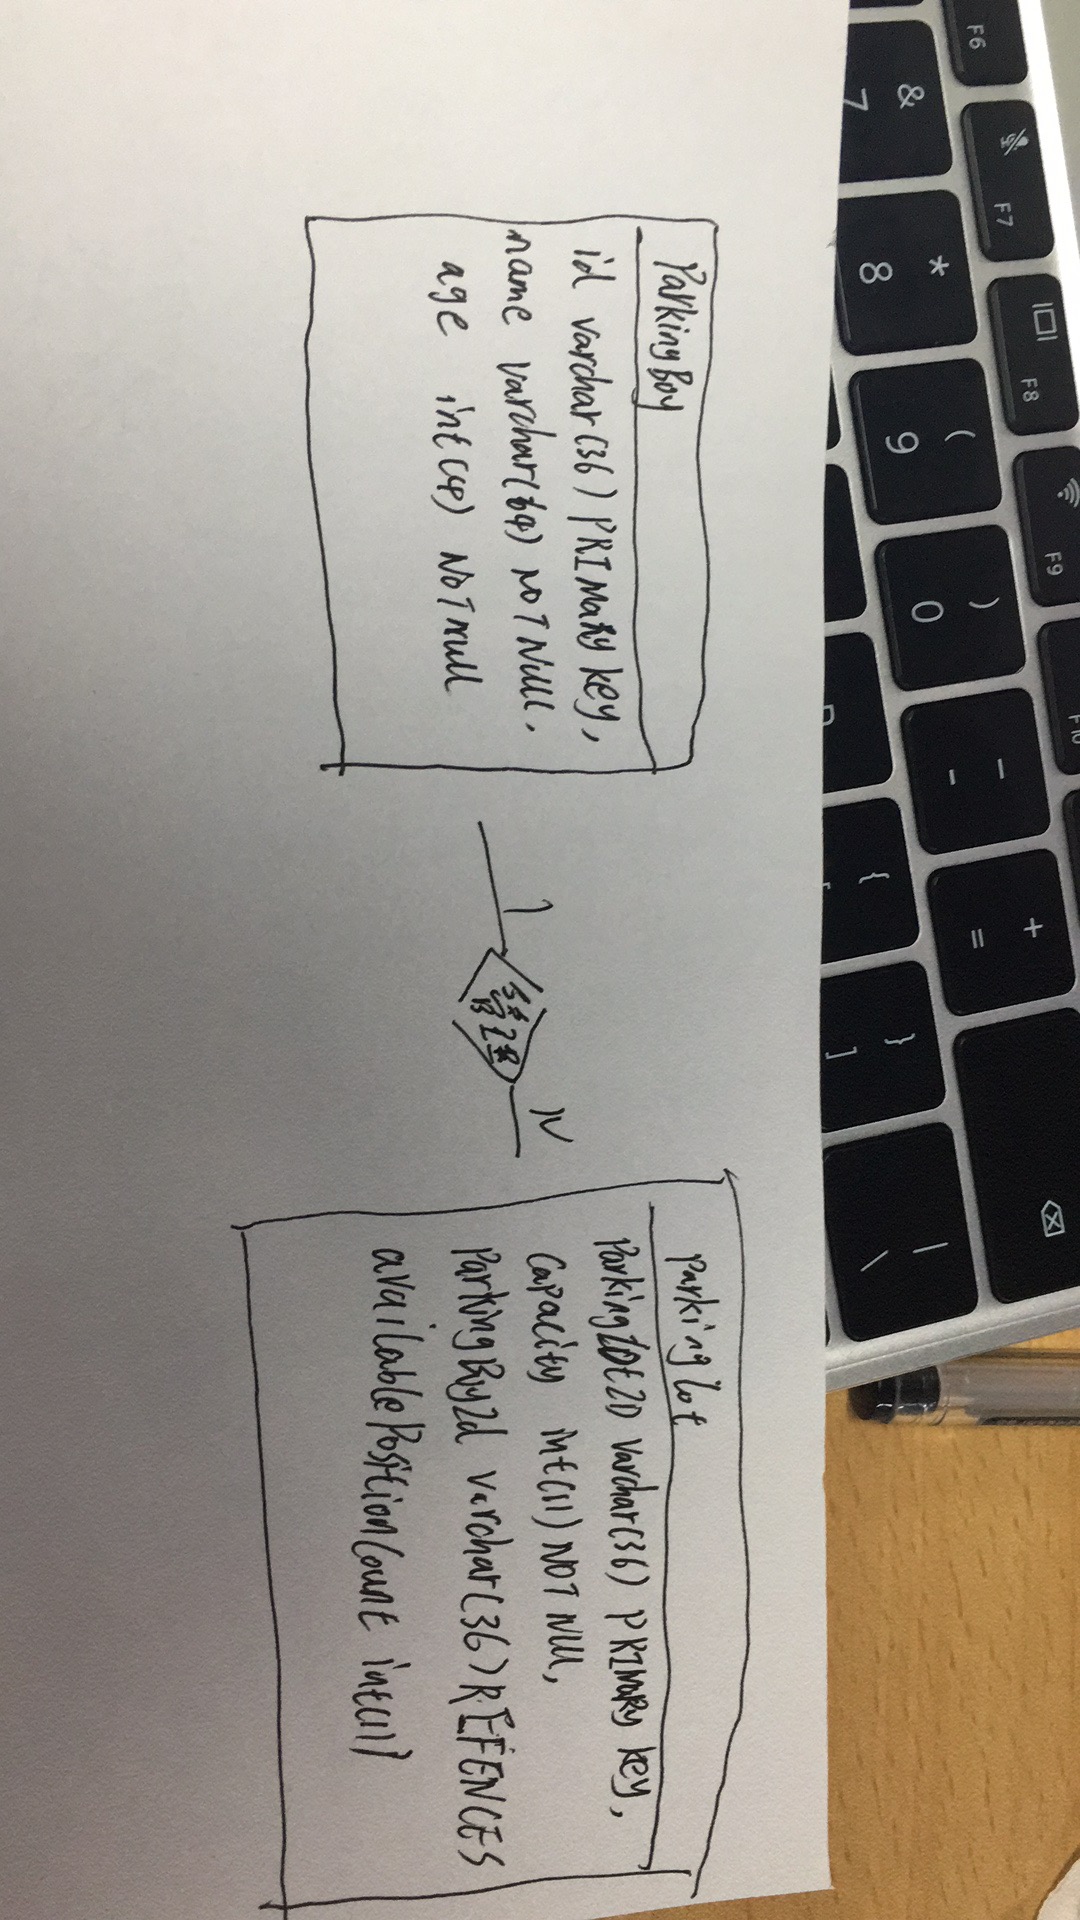 ParkingBoy
id varchar(36) PRIMARY key,
name varchar(64) NOT NULL,
age int(4) NOT null
1
N
parkinglot
ParkingLOtID varchar(36) PRIMARY key,
Capacity int(11) NOT NULL,
ParkingById varchar(36) REFENCES
availablePositionCount int(11)
F6
& 7
F7
* 8
F8
( 9
F9
) 0
F10
_ -
+ =
{ [
} ]
| \